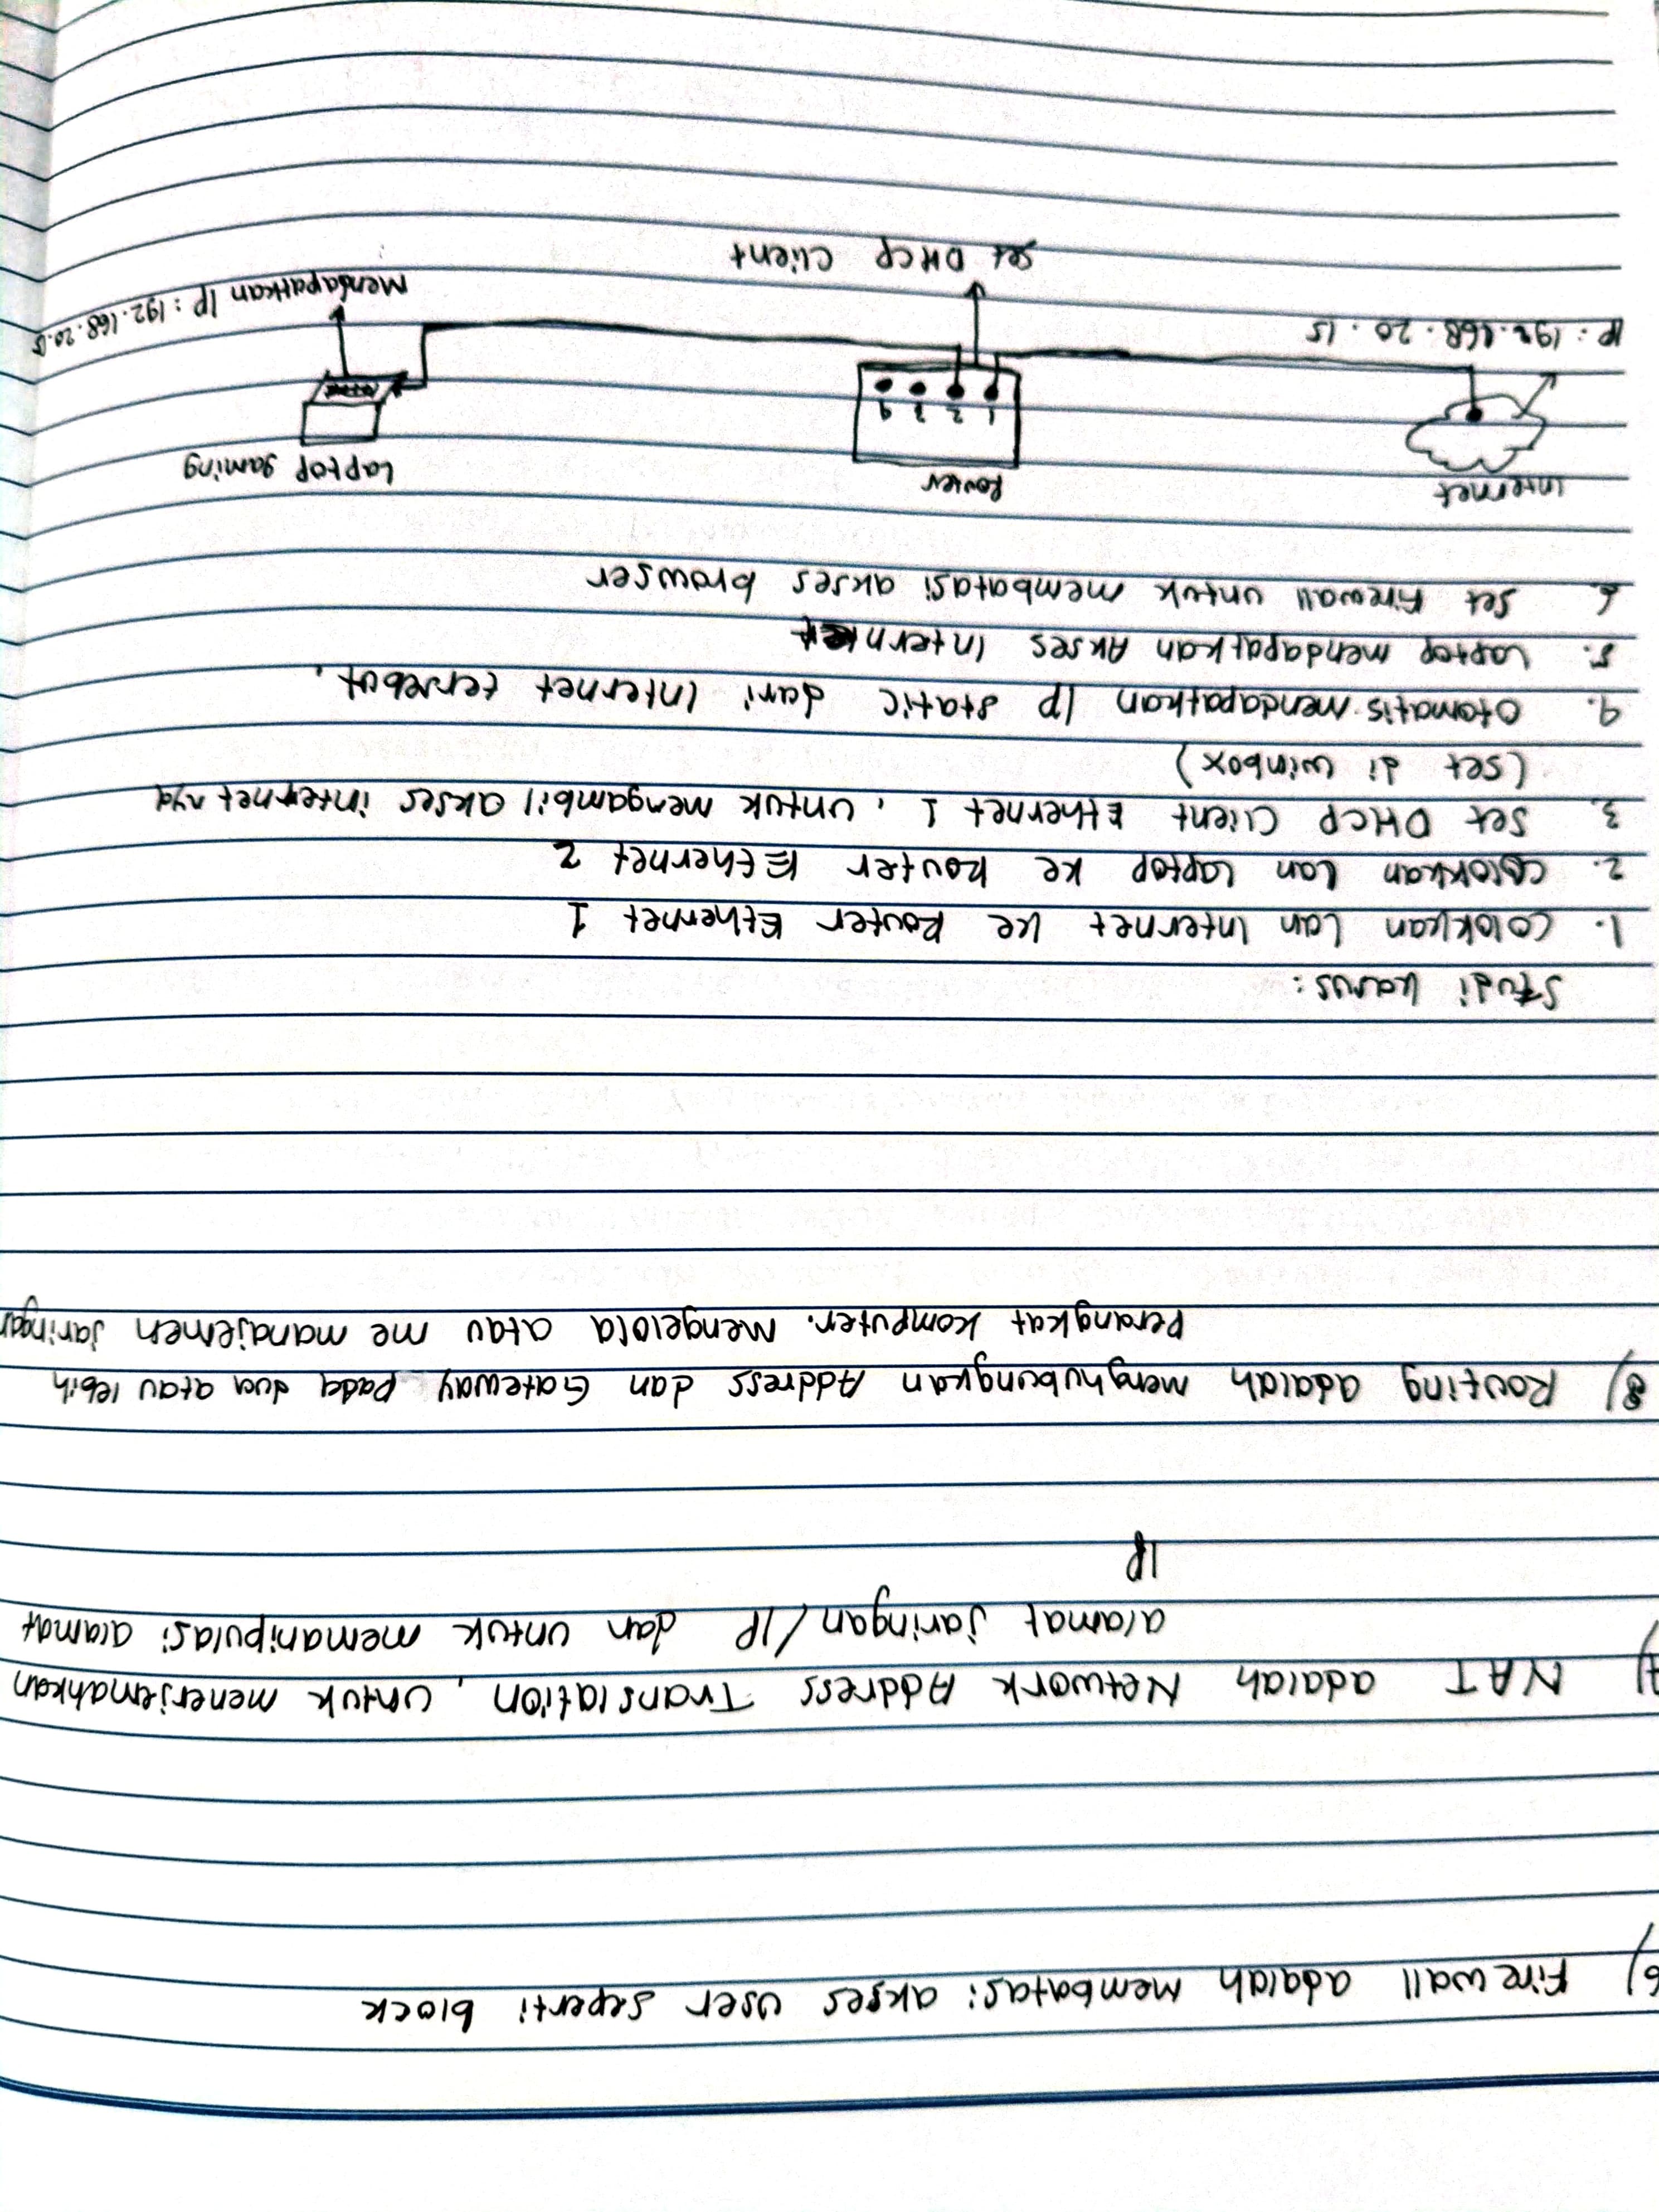 6) Firewall adalah membatasi akses user seperti block
7) NAT adalah Network Address Translation, untuk menerjemahkan
alamat jaringan/IP dan untuk memanipulasi alamat
IP
8) Routing adalah menghubungkan Address dan Gateway pada dua atau lebih
Perangkat komputer. Mengelola atau me manajemen jaringan
Studi kasus:
1. Colokkan Lan Internet ke Router Ethernet 1
2. Colokkan Lan Laptop ke Router Ethernet 2
3. Set DHCP Client Ethernet 1, untuk mengambil akses internet nya
(set di winbox)
4. Otomatis mendapatkan IP static dari Internet tersebut.
5. Laptop mendapatkan Akses Internet
6. Set Firewall untuk membatasi akses browser
Internet
Router
Laptop gaming
1 2 3 4
IP: 192.168.20.15
Mendapatkan IP: 192.168.20.15
Set DHCP Client